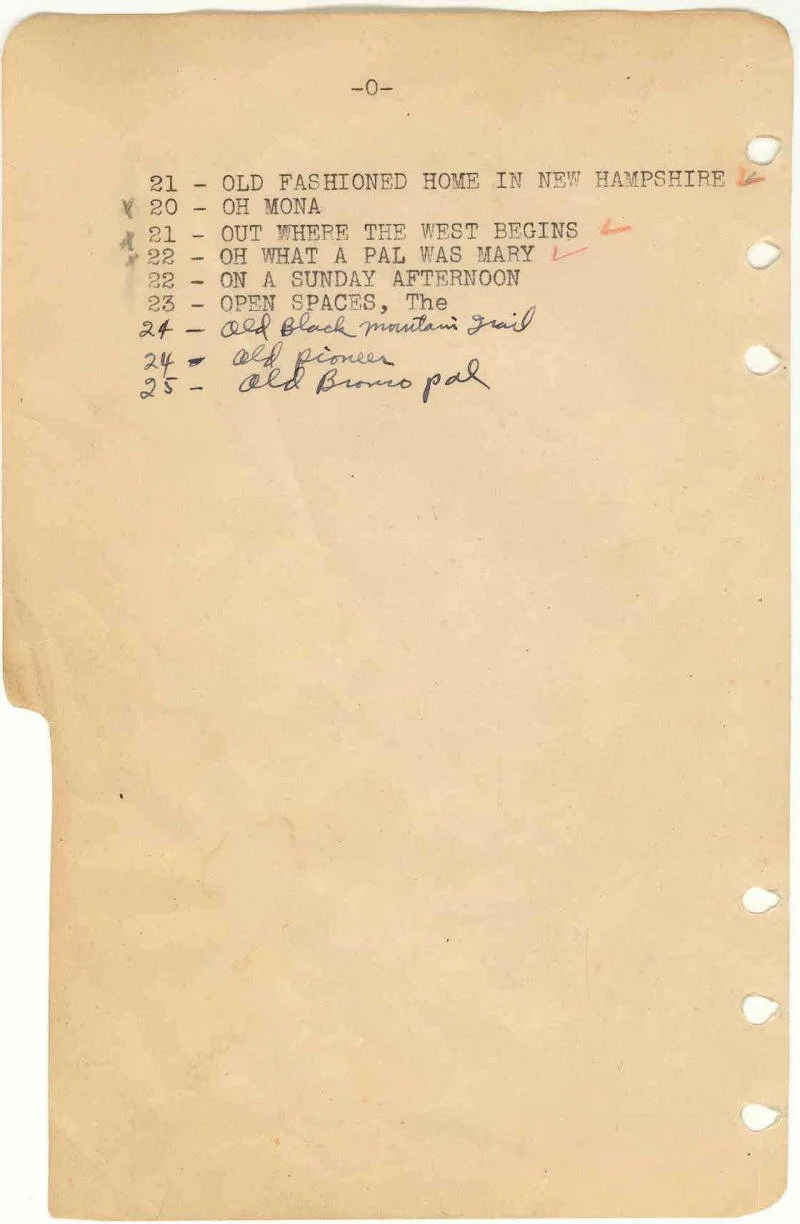 -O-
21 - OLD FASHIONED HOME IN NEW HAMPSHIRE ✓
x 20 - OH MONA
x 21 - OUT WHERE THE WEST BEGINS ✓
x 22 - OH WHAT A PAL WAS MARY ✓
22 - ON A SUNDAY AFTERNOON
23 - OPEN SPACES, The
24 - Old Black mountain Trail
24 - Old pioneer
25 - Old Bronco pal